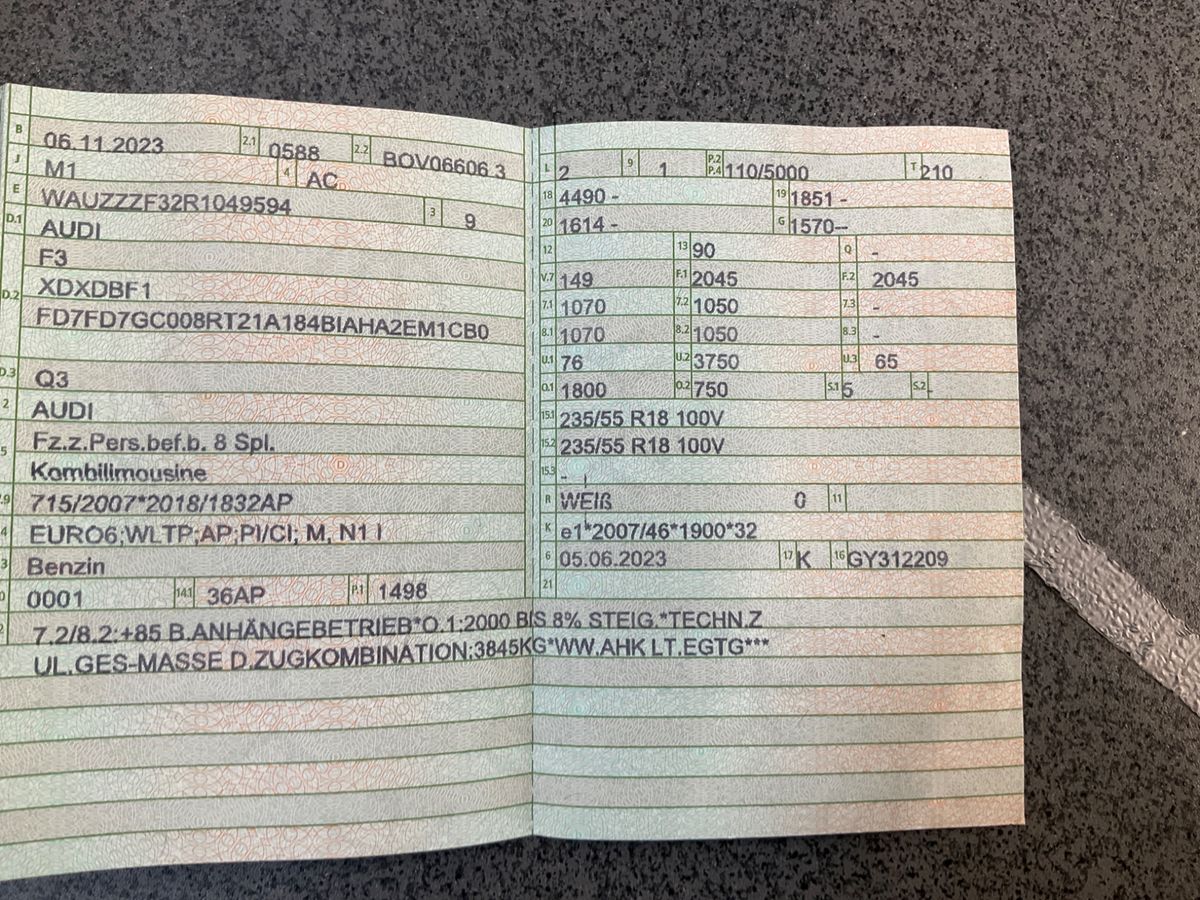 B 06.11.2023 2.1 0588 2.2 BOV06606 3
J M1 4 AC
E WAUZZZF32R1049594 3 9
D.1 AUDI
F3
D.2 XDXDBF1
FD7FD7GC008RT21A184BIAHA2EM1CB0
D.3 Q3
2 AUDI
5 Fz.z.Pers.bef.b. 8 Spl.
Kombilimousine
.9 715/2007*2018/1832AP
4 EURO6;WLTP;AP;PI/CI; M, N1 I
3 Benzin
0 0001 14.1 36AP P.1 1498
L 2 9 1 P.2 P.4 110/5000 T 210
18 4490 - 19 1851 -
20 1614 - G 1570--
12 13 90 Q -
V.7 149 F.1 2045 F.2 2045
7.1 1070 7.2 1050 7.3 -
8.1 1070 8.2 1050 8.3 -
U.1 76 U.2 3750 U.3 65
O.1 1800 O.2 750 S.1 5 S.2 -
15.1 235/55 R18 100V
15.2 235/55 R18 100V
15.3 -
R WEIß 0 11
K e1*2007/46*1900*32
6 05.06.2023 17 K 16 GY312209
21
2 7.2/8.2:+85 B.ANHÄNGEBETRIEB*O.1:2000 BIS 8% STEIG.*TECHN.Z
UL.GES-MASSE D.ZUGKOMBINATION:3845KG*WW.AHK LT.EGTG***